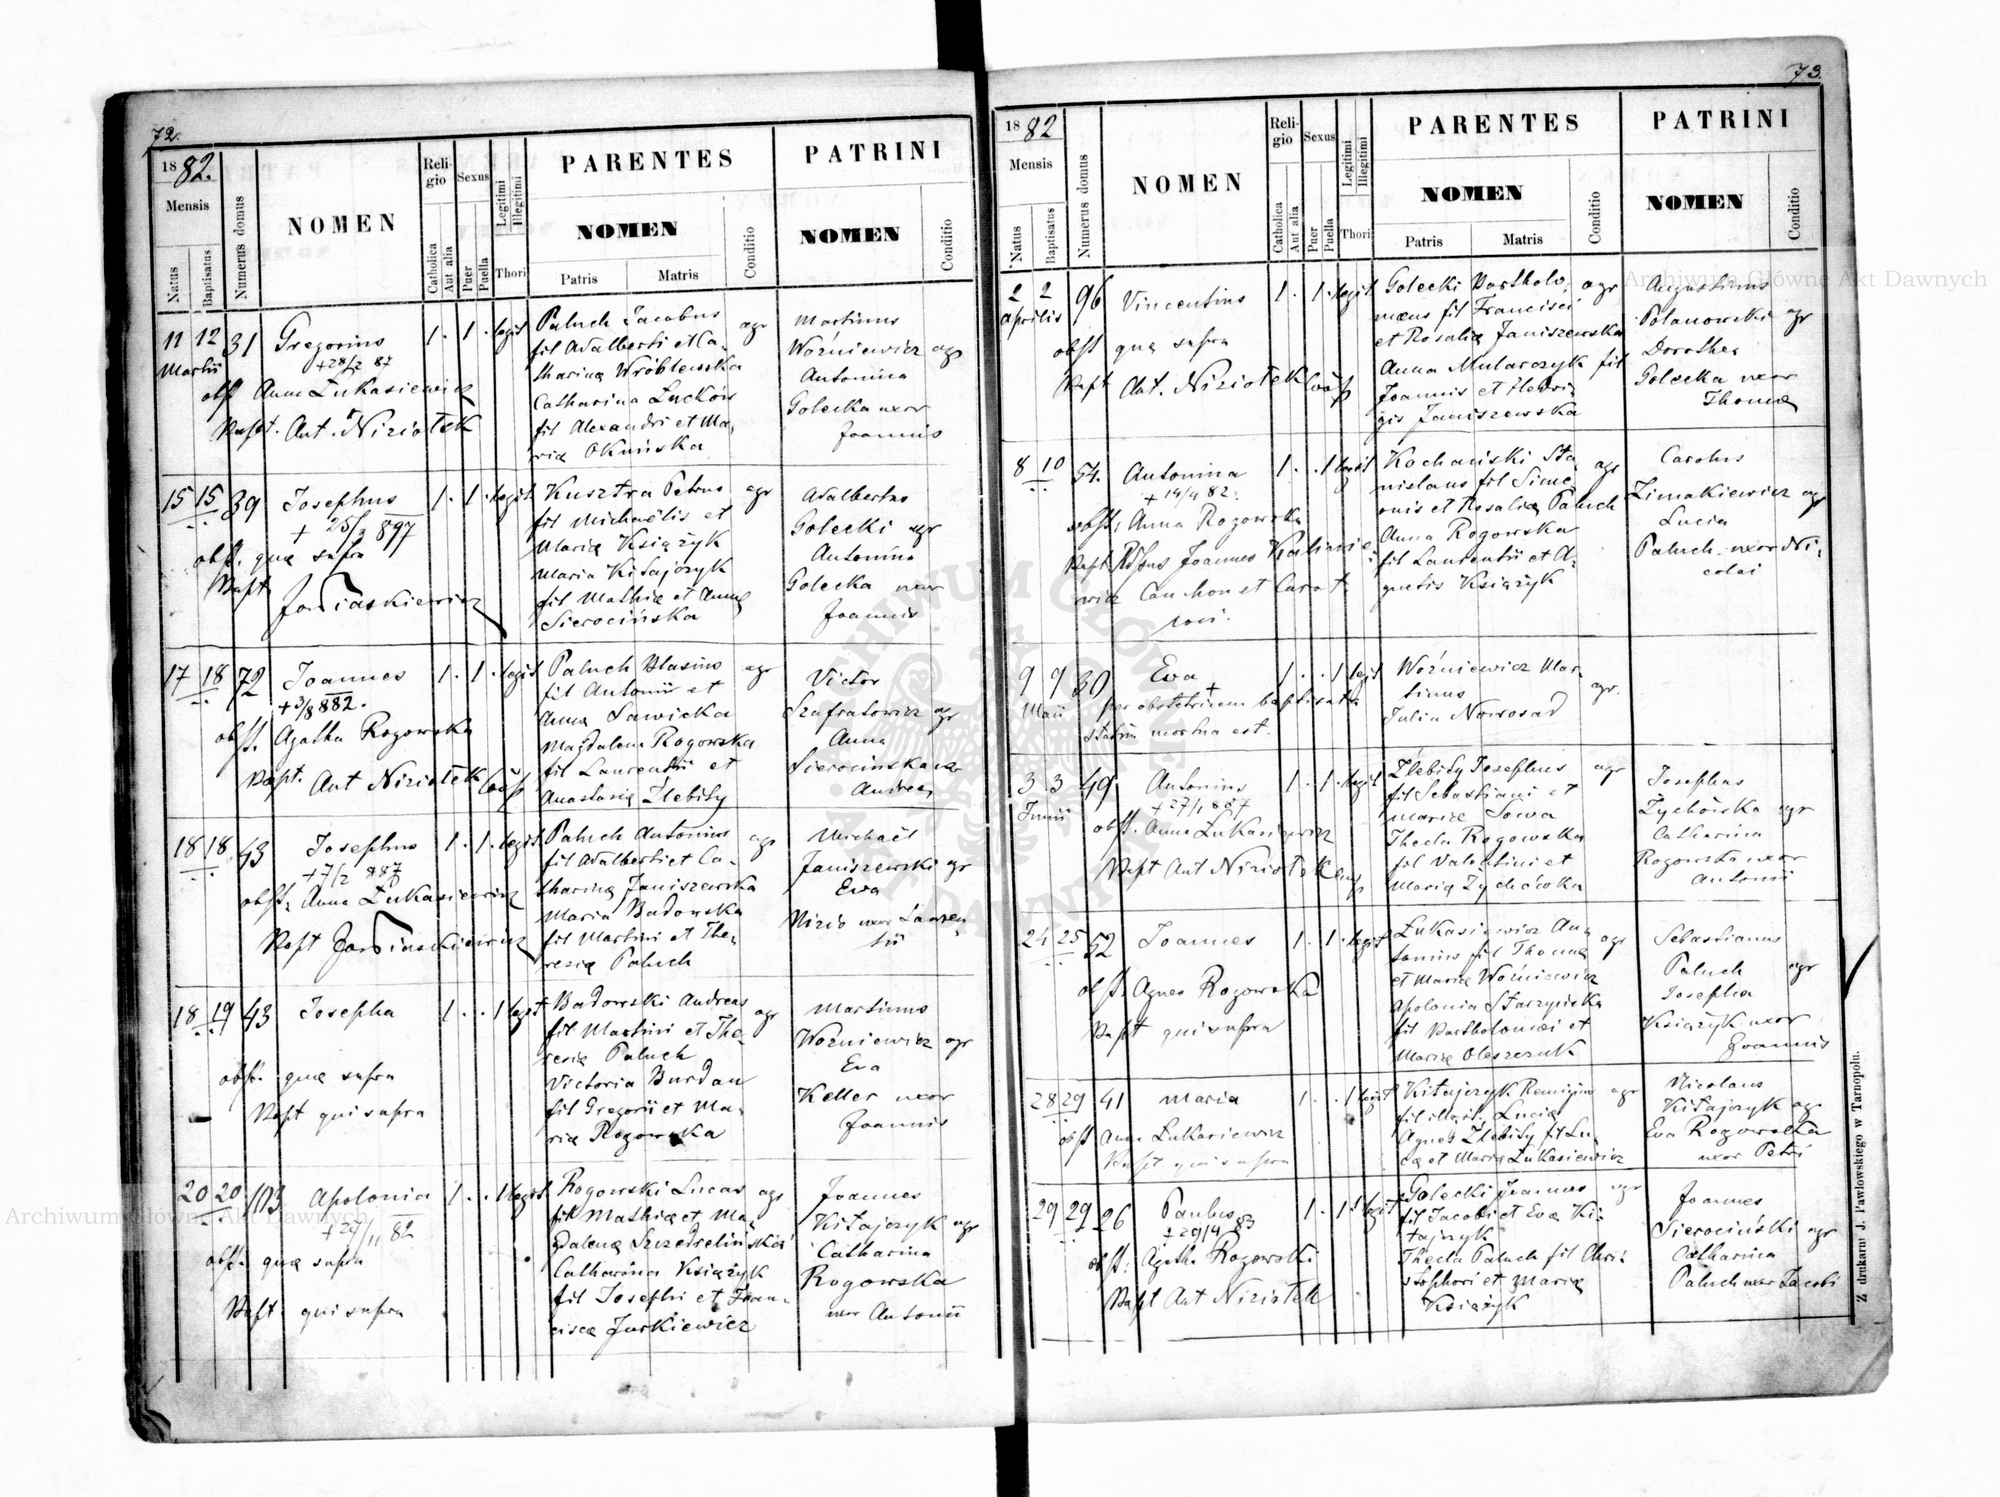 72.
1882.
Mensis
Natus
Baptisatus
Numerus domus
NOMEN
Religio
Catholica
Aut alia
Sexus
Puer
Puella
Legitimi
Illegitimi
Thori
PARENTES
NOMEN
Patris
Matris
Conditio
PATRINI
NOMEN
Conditio
11 12 31 Gregorius 1. 1. legit
Martii
+28/2 87
obst Anna Łukasiewicz
Bapt. Ant. Niziołek
Paluch Jacobus agr
fil Adalberti et Ca-
tharinæ Wróblewska
Catharina Łuckow
fil Alexandri et Ma-
riæ Okmińska
Martinus
Woźniewicz agr
Antonina
Golecka uxor
Joannis
15 15 39 Josephus 1. 1. legit
+ 25/2 897
obst. quæ supra
Bapt
Kusztra Petrus agr
fil Michaëlis et
Mariæ Książyk
Maria Kitajczyk
fil Mathiæ et Annæ
Sierocińska
Adalbertus
Golecki agr
Antonina
Golecka uxor
Joannis
17 18 72 Joannes 1. 1. legit
+3/8 882.
obst. Agatha Rogowska
Bapt. Ant Niziołek Coop
Paluch Blasius agr
fil Antonii et
Annæ Sawicka
Magdalena Rogowska
fil Laurentii et
Anastasiæ Źlebiży
Victor
Szafratowicz agr
Anna
Sierocinska ux
Andreæ
18 18 43 Josephus 1. 1. legit
+7/2 887
obst. Anna Łukasiewicz
Bapt
Paluch Antonius agr
fil Adalberti et Ca-
tharinæ Janiszewska
Maria Badowska
fil Martini et The-
resiæ Paluch
Michaël
Janiszewski agr
Eva
Nizio uxor Lauren-
tii
18 19 43 Josepha 1. . 1 legit
obst. quæ supra
Bapt qui supra
Badowski Andreas agr
fil Martini et The-
resiæ Paluch
Victoria Burdan
fil Gregorii et Ma-
riæ Rogowska
Martinus
Woźniewicz agr
Eva
Keller uxor
Joannis
20 20 103 Apolonia 1. . 1 legit
+ 29/11 82
obst. quæ supra
Bapt. qui supra
Rogowski Lucas agr
fil Mathiæ et Ma-
gdalenæ
Catharina Książyk
fil Josephi et Fran-
ciscæ Jurkiewicz
Joannes
Kitajczyk agr
Catharina
Rogowska
uxor Antonii
73.
1882
Mensis
Natus
Baptisatus
Numerus domus
NOMEN
Religio
Catholica
Aut alia
Sexus
Puer
Puella
Legitimi
Illegitimi
Thori
PARENTES
NOMEN
Patris
Matris
Conditio
PATRINI
NOMEN
Conditio
2 2 96 Vincentius 1. 1. legit
Aprilis
obst quæ supra
Bapt Ant. Niziołek Coop
Golecki Bartholo- agr
mæus fil Francisci
et Rosaliæ Janiszewska
Anna Mularczyk fil
Joannis et Hedwi-
gis Janiszewska
Augustinus
Polanowski agr
Dorothea
Golecka uxor
Thomæ
8 10 54. Antonina 1. . 1 legit
+ 14/4 82.
obst. Anna Rogowska
Bapt Joannes Kalinie-
wicz et Curat.
Kochański Sta- agr
nislaus fil Sime-
onis et Rosaliæ Paluch
Anna Rogowska
fil Laurentii et A-
gnetis Książyk
Carolus
Zimakiewicz agr
Lucia
Paluch uxor Ni-
colai
9 9 30 Eva 1. . 1 legit
+
Maii
per obstetricem baptisata
statim mortua est.
Woźniewicz Mar-
tinus agr.
Julia Nowosad
3 3 49 Antonius 1. 1. legit
Junii
obst. Anna Łukasiewicz
Bapt Ant Niziołek
Źlebiży Josephus agr
fil Sebastiani et
Mariæ Sowa
Thecla Rogowska
fil Valentini et
Mariæ Żychówka
Josephus
Żychówska agr
Catharina
Rogowska uxor
Antonii
24 25 52 Joannes 1. 1. legit
obst. Agnes Rogowska
Bapt qui supra
Łukasiewicz An- agr
tonius fil Thomæ
et Mariæ Woźniewicz
Apolonia Starzyńska
fil Bartholomæi et
Mariæ Oleszczuk
Sebastianus
Paluch agr
Josepha
Książyk uxor
Joannis
28 29 41 Maria 1. . 1 legit
obst Anna Łukasiewicz
Bapt qui supra
Kitajczyk Remigius agr
fil illegit. Luciæ
Agnes Źlebiży fil Lu-
cæ et Mariæ Łukasiewicz
Nicolaus
Kitajczyk agr
Eva Rogowska
uxor Petri
29 29 26 Paulus 1. 1. legit
+ 29/4 83
obst. Agatha Rogowski
Bapt Ant Niziołek
Golecki Joannes agr
fil Jacobi et Evæ Ki-
tajczyk
Thecla Paluch fil Chri-
stophori et Mariæ
Książyk
Joannes
Sierociński agr
Catharina
Paluch uxor Jacobi
Z drukarni J. Pawłowskiego w Tarnopolu.
Archiwum Główne Akt Dawnych
Archiwum Główne Akt Dawnych
ARCHIWUM GŁÓWNE AKT DAWNYCH